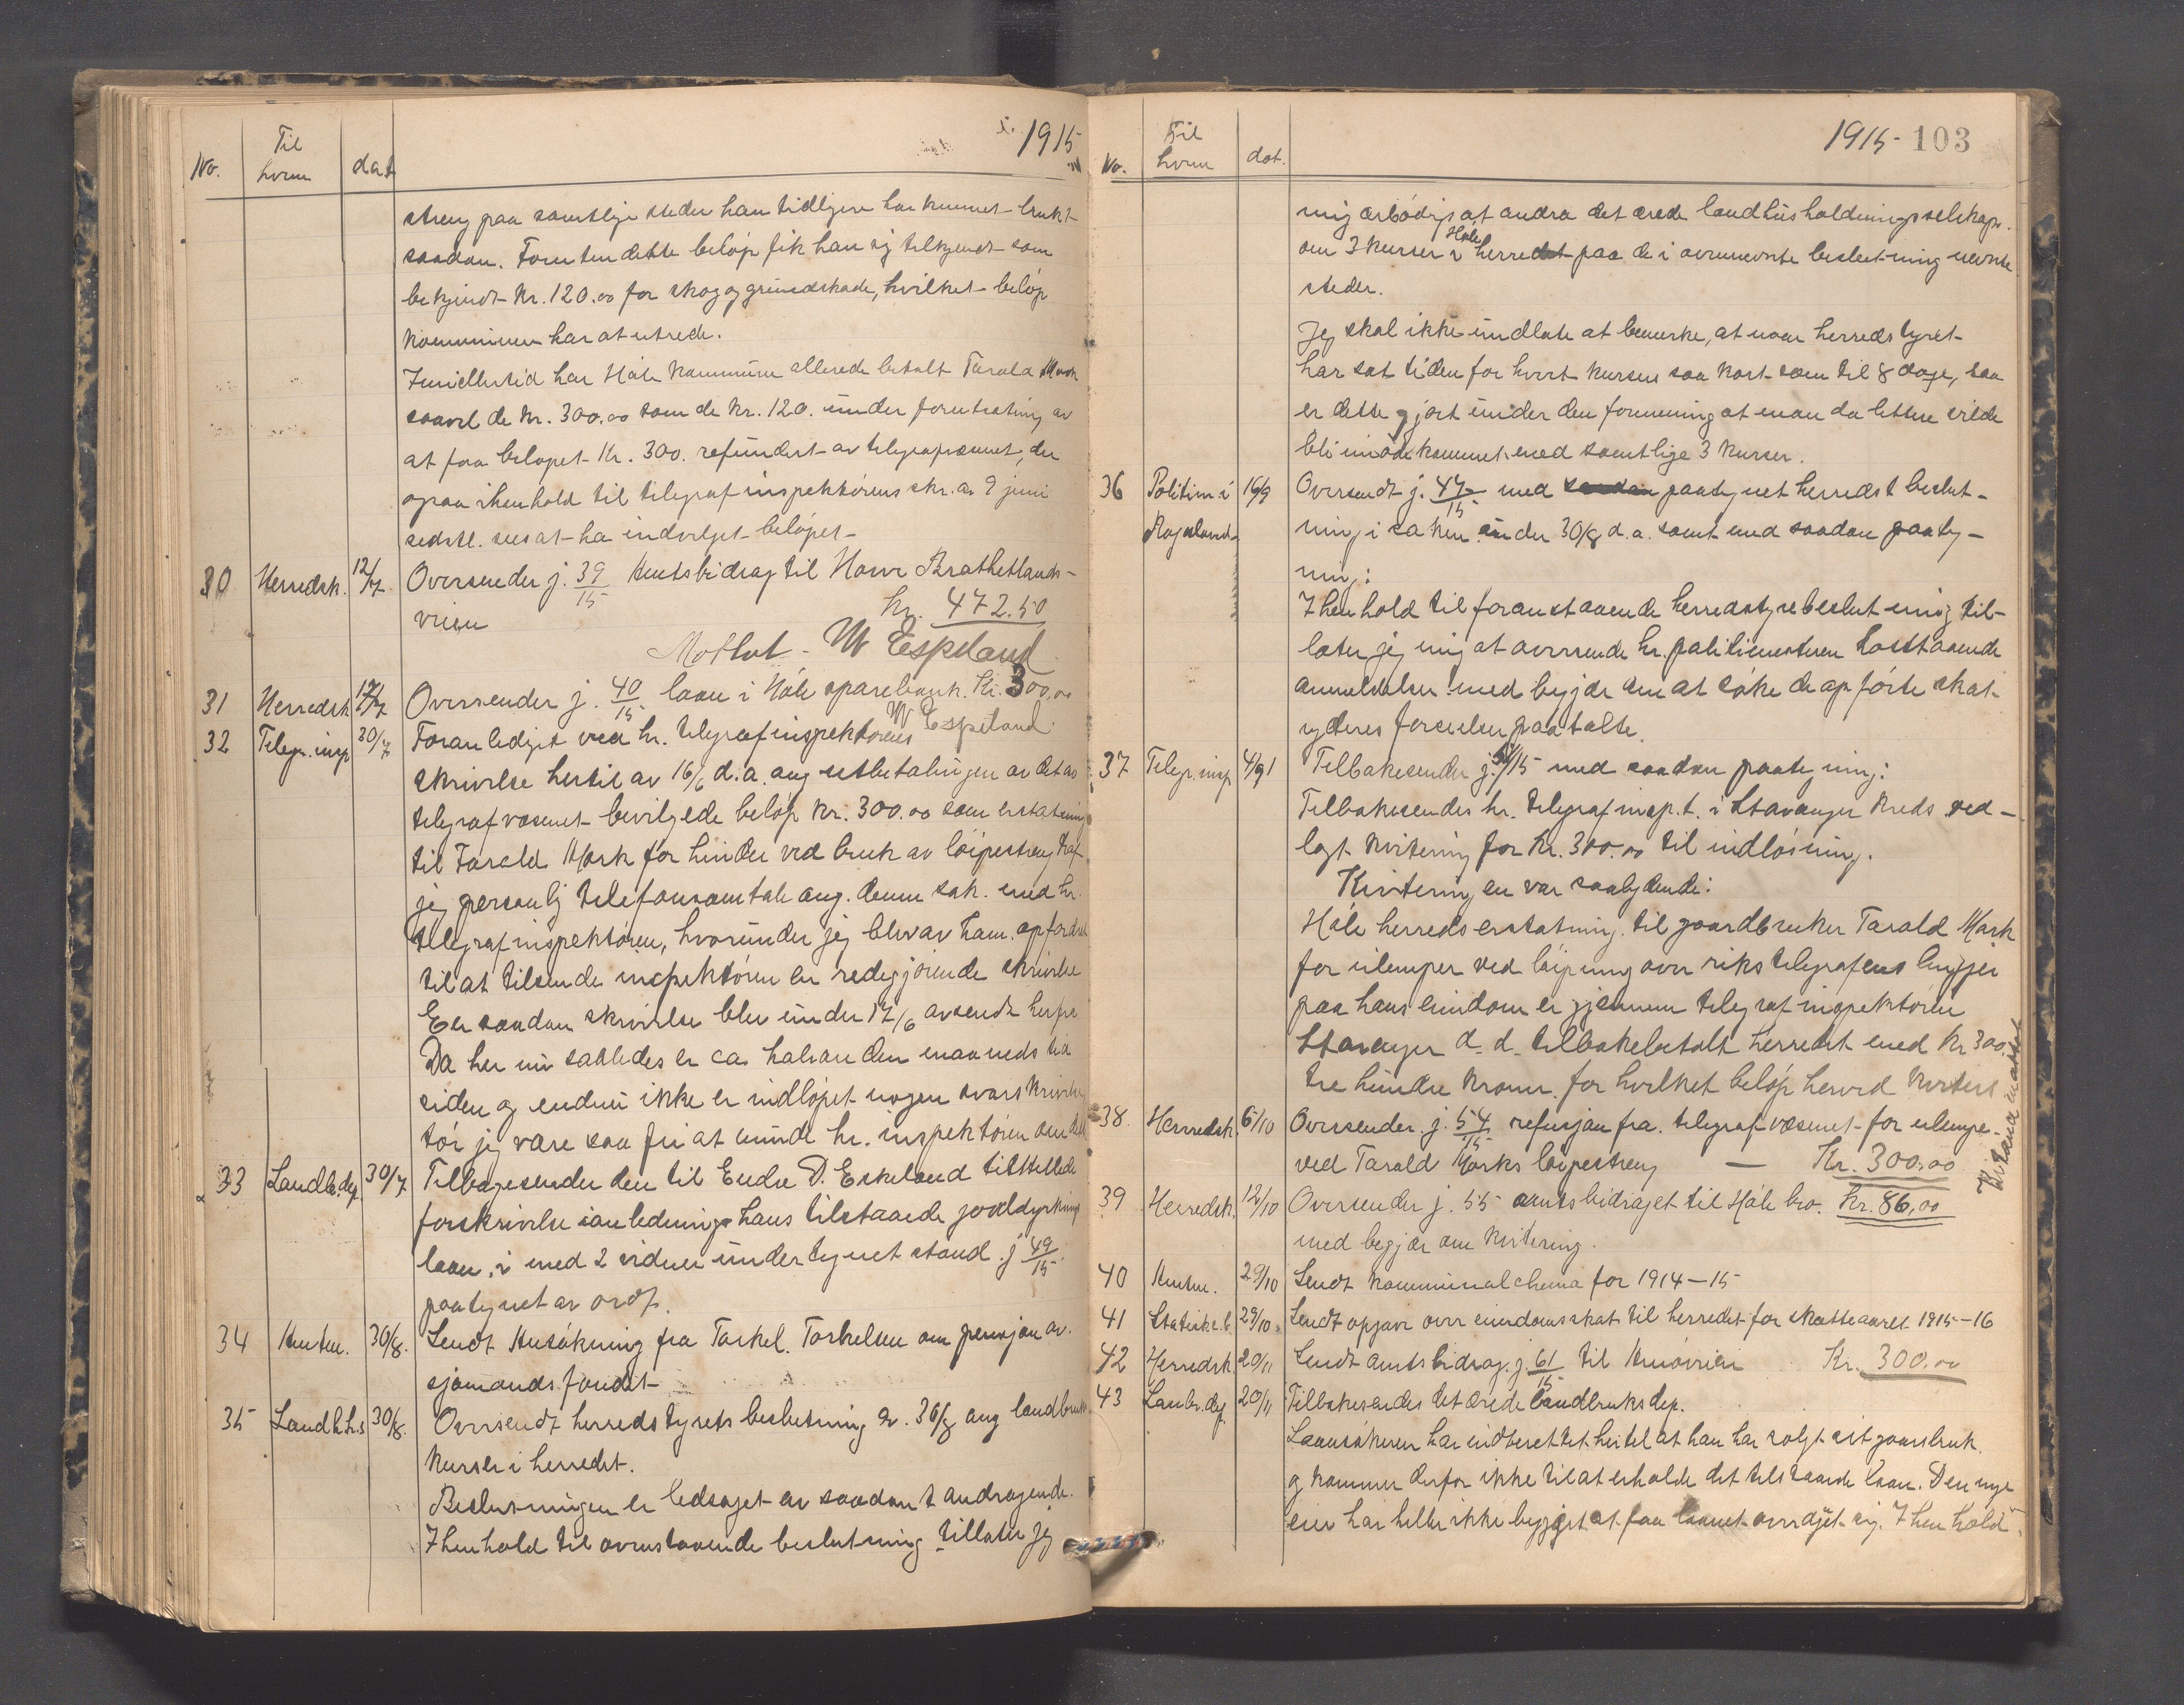 No. Til hvem dat. 1915
streng paa samtlige steder han tidligere har kunnet brukt
saadan. Foruten dette beløp fik han sig tilkjendt som
bekjendt Kr. 120.00 for skog og grundskade, hvilket beløp
kommunen har at utrede.
Imidlertid har Høle kommune allerede betalt Tarald Mørk
saavel de Kr. 300.00 som de Kr. 120. under forutsætning av
at faa beløpet Kr. 300. refundert av telegrafvæsenet, der
ogsaa i henhold til telegrafinspektørens skr. av 9 juni
sidstl. sees at ha indvilget beløpet
30 Herredsk. 12/7 Oversender j. 39/15 Amtsbidrag til Høine Brathetlands-
veien Kr. 472.50
Mottat - M Espeland
31 Herredsk 17/7 Oversender j. 40/15 laan i Høle sparebank. Kr. 300,00
M Espeland
32 Telegr. insp 30/7 Foranlediget ved hr. telegrafinspektørens
skrivelse hertil av 16/6 d.a. ang utbetalingen av det av
telegrafvæsenet bevilgede beløp Kr. 300.00 som erstatning
til Tarald Mørk for hinder ved bruk av løipestreng haf
jeg personlig telefonsamtale ang. denne sak. med hr.
telegrafinspektøren, hvorunder jeg blev av ham opfordret
til at tilsende inspektøren en redegjørende skrivelse
En saadan skrivelse blev under 17/6 avsendt herfra
Da her nu saaledes er ca halvanden maaneds tid
siden og endnu ikke er indløpet nogen svarskrivelse
tør jeg være saa fri at minde hr. inspektøren om dette
33 Landb. dep 30/7 Tilbagesender den til Endre D. Eskeland tilstillede
forskrivelse i anlednings hans tilstaaede jorddyrknings
laan, i med 2 vidner undertegnet stand. j 49/15.
paategnet av ordf.
34 Amtm. 30/8. Sendt Ansøkning fra Torkel Torkelsen om pensjon av
sjømandsfondet
35 Landh.h.s 30/8. Oversendt herredstyrets beslutning av. 30/8 ang landbruks
kurser i herredet.
Beslutningen er ledsaget av saadant andragende.
I henhold til ovenstaaende beslutning tillater jeg
No. Til hvem dat. 1915 103
mig ærbødigst at andra det ærede landhusholdningsselskap
om 3 kurser i Høle herredet paa de i ovennevnte beslutning nevnte
steder.
Jeg skal ikke undlate at bemerke, at naar herredstyret
har sat tiden for hvert kursus saa kort som til 8 dage, saa
er dette gjort under den formening at man da lettere vilde
bli imøtekommet med samtlige 3 kurser.
36 Politim i Rogaland 16/9 Oversendt j. 47/15 med saadan paategnet herredst beslut-
ning i saken under 30/8 d.a. samt med saadan paateg-
ning:
I henhold til foranstaaende herredstyrebeslutning til-
later jeg mig at oversende hr. politimesteren hosstaaende
anmeldelser med begjær om at søke de opførte skat-
yderes forseelser paatalte.
37 Telegr. insp 4/91 Tilbakesender j. 51/15 med saadan paategning:
Tilbakesendes hr. telegrafinsp.t. i Stavanger Kreds ved-
lagt kvitering for Kr. 300.00 til indløsning.
Kviteringen var saalydende:
Høle herreds erstatning til gaardbruker Tarald Mørk
for ulemper ved løipning over rikstelegrafens linjer
paa hans eiendom er gjennem telegrafinspektøren
Stavanger d. d. tilbakebetalt herredet med Kr 300.
tre hundre kroner for hvilket beløp herved kvitert
38. Herredsk. 5/10 Oversender j. 54/15 refusjon fra telegrafvæsenet for ulempe
ved Tarald Mørks løipestreng — Kr. 300,00
39 Herredsk. 12/10 Oversender j. 55 amtsbidraget til Høle bro. Kr. 86,00
med begjær om kvitering.
40 Amtm. 29/10 Sendt kommunalchema for 1914-15
41 Statiske.b. 29/10. Sendt opgave over eiendomsskat til herredet for skatteaaret 1915-16
42 Herredsk 20/11 Sendt amtsbidrag. j. 61/15 til Amøveien Kr. 300.00
43 Lanbr. dep. 20/11 Tilbakesendes det ærede landbruksdep.
Laansøkeren har indberettet hertil at han har solgt sit gaarsbruk
og kommer derfor ikke til at erholde det tilstaaede laan. Den nye
eier har heller ikke begjært at faa laanet overdratt sig. I henhold